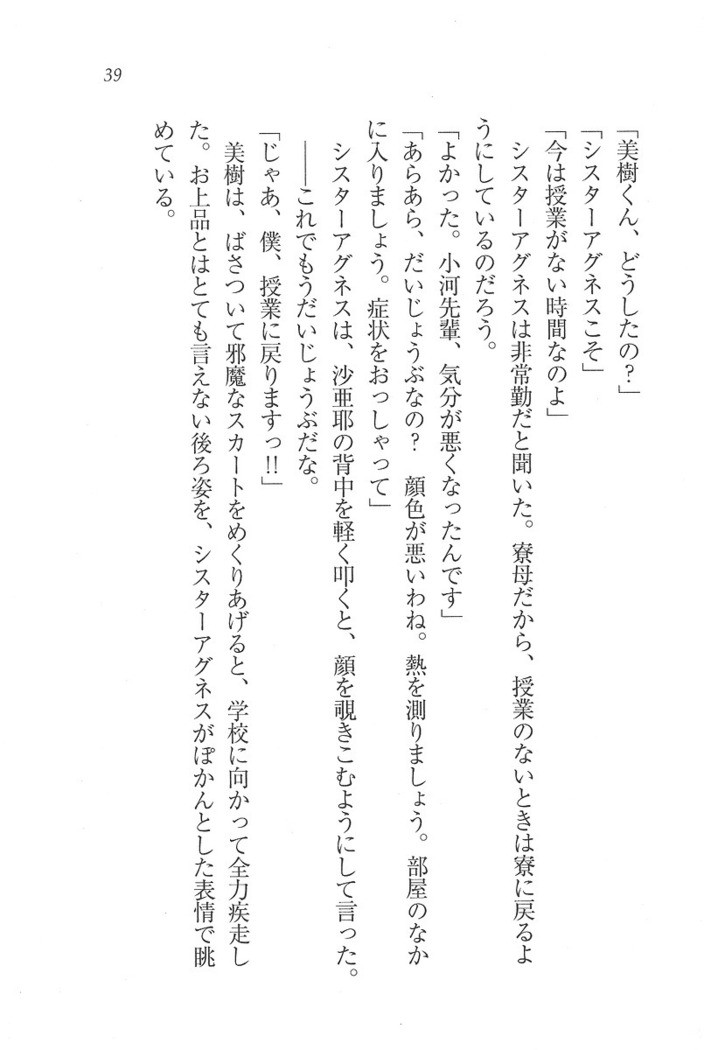 39
「美樹くん、どうしたの？」
「シスターアグネスこそ」
「今は授業がない時間なのよ」
　シスターアグネスは非常勤だと聞いた。寮母だから、授業のないときは寮に戻るよ
うにしているのだろう。
「よかった。小河先輩、気分が悪くなったんです」
「あらあら、だいじょうぶなの？　顔色が悪いわね。熱を測りましょう。部屋のなか
に入りましょう。症状をおっしゃって」
　シスターアグネスは、沙亜耶の背中を軽く叩くと、顔を覗きこむようにして言った。
　――これでもうだいじょうぶだな。
「じゃあ、僕、授業に戻りますっ!!」
　美樹は、ばさついて邪魔なスカートをめくりあげると、学校に向かって全力疾走し
た。お上品とはとても言えない後ろ姿を、シスターアグネスがぽかんとした表情で眺
めている。